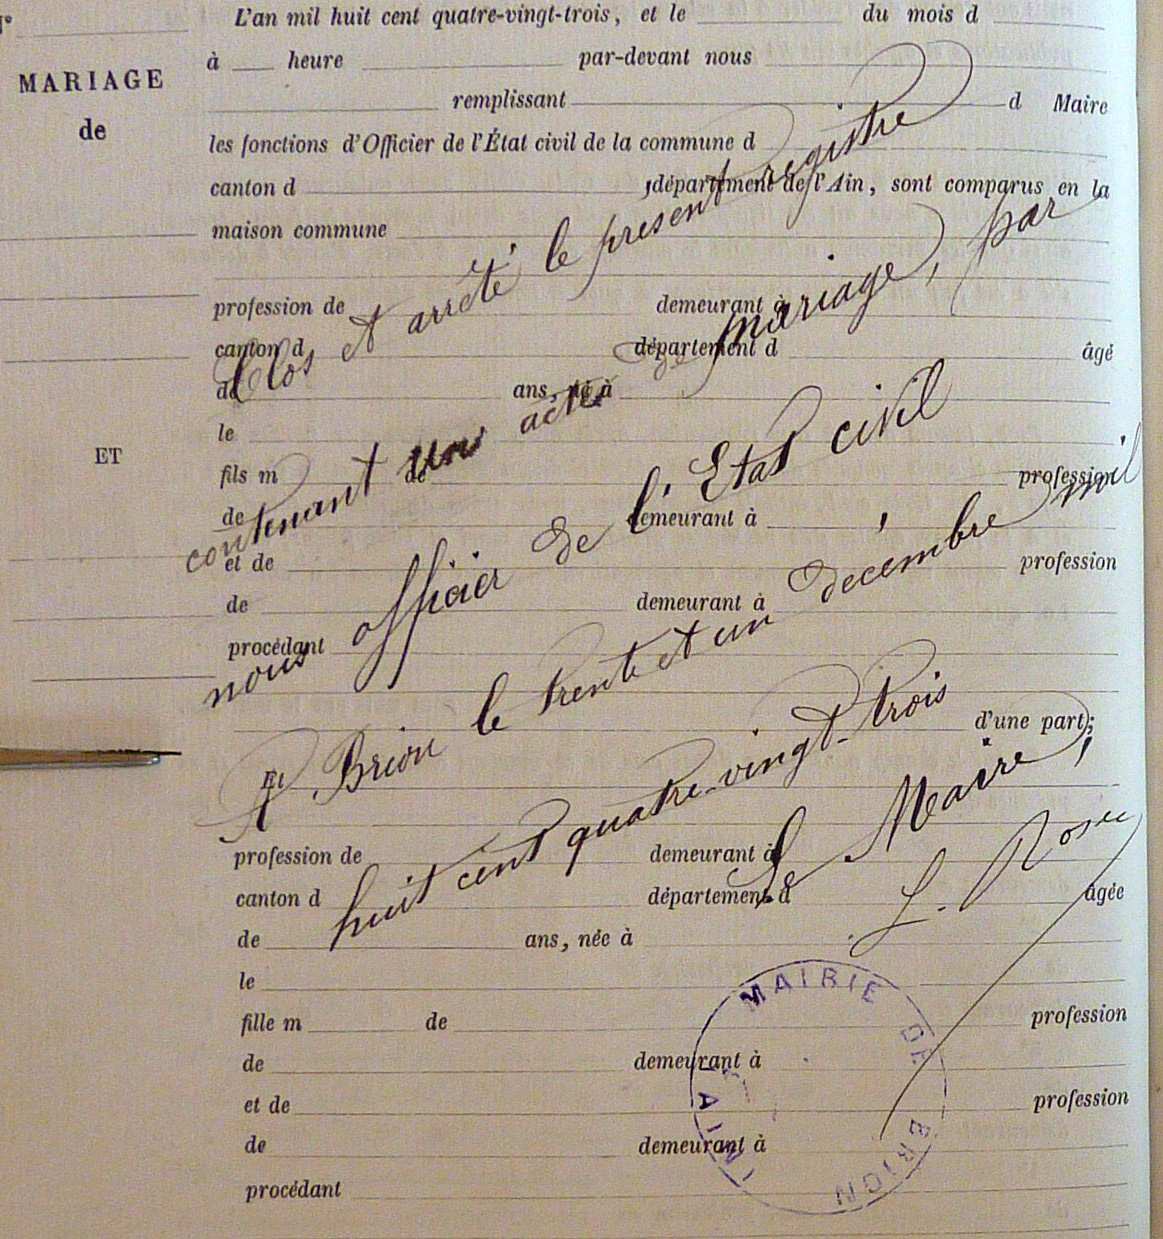 L'an mil huit cent quatre-vingt-trois, et le du mois d
MARIAGE
de
à heure par-devant nous
remplissant d Maire
les fonctions d'Officier de l'État civil de la commune d
canton d , département de l'Ain, sont comparus en la
maison commune
profession de demeurant à
canton d département d âgé
de ans, né à
le
ET
fils m de profession
de demeurant à
et de profession
de demeurant à
procédant
d'une part;
Et
profession de demeurant à
canton d département d âgée
de ans, née à
le
fille m de profession
de demeurant à
et de profession
de demeurant à
procédant
Clos et arrêté le présent registre
contenant un acte de mariage, par
nous officier de l'Etat civil
A Brion le trente et un décembre mil
huit cent quatre-vingt-trois
Le Maire,
MAIRIE DE BRION
(AIN)